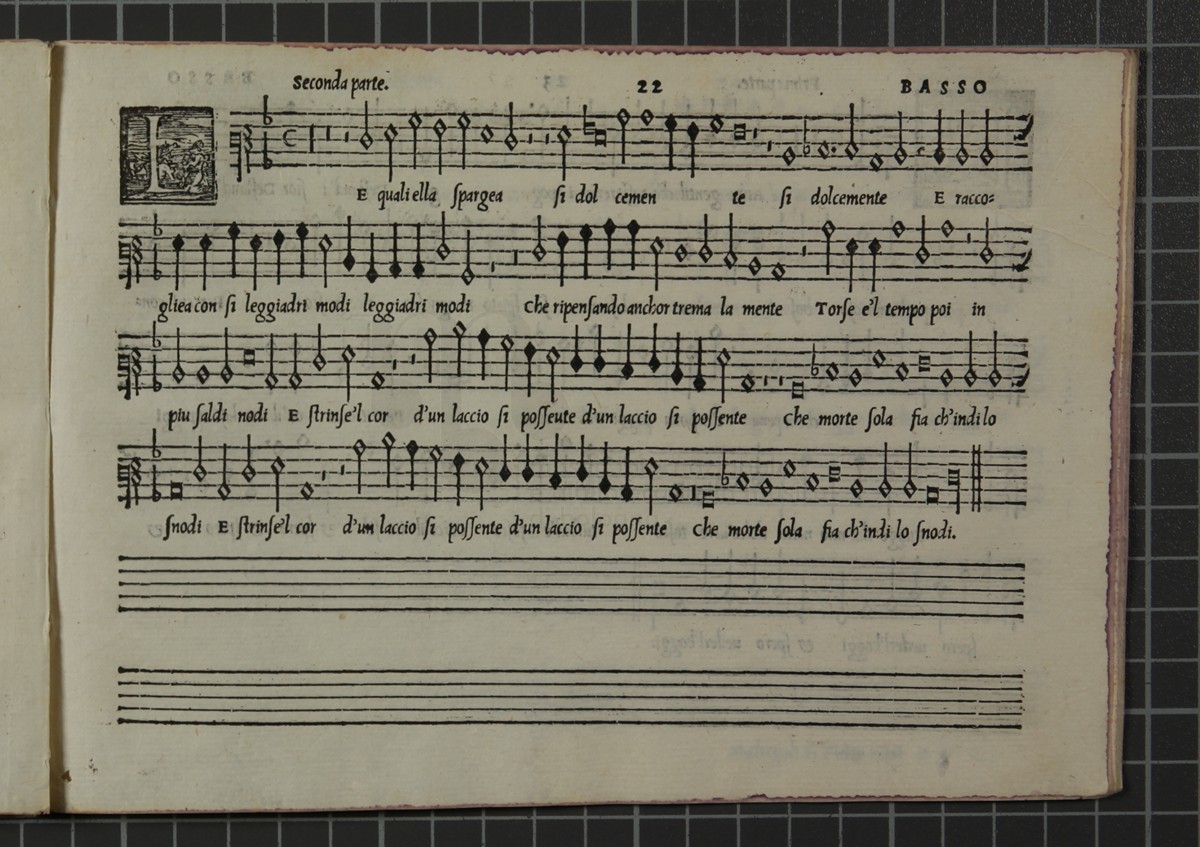 Seconda parte. 22 BASSO
LE quali ella spargea si dol cemen te si dolcemente E racco=
gliea con si leggiadri modi leggiadri modi Che ripensando anchor trema la mente Torse e'l tempo poi in
piu saldi nodi E strinse'l cor d'un laccio si posseute d'un laccio si possente Che morte sola fia ch'indi lo
snodi E strinse'l cor d'un laccio si possente d'un laccio si possente Che morte sola fia ch'indi lo snodi.